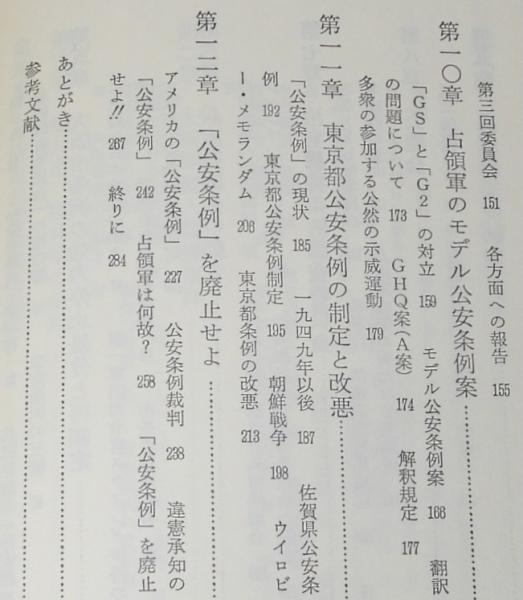 第三回委員会 151 各方面への報告 155
第一〇章 占領軍のモデル公安条例案……………
「GS」と「G2」の対立 159 モデル公安条例案 168 翻訳
の問題について 173 GHQ案(A案) 174 解釈規定 177
多衆の参加する公然の示威運動 179
第一一章 東京都公安条例の制定と改悪……………
「公安条例」の現状 185 一九四九年以後 187 佐賀県公安条
例 192 東京都公安条例制定 195 朝鮮戦争 198 ウイロビ
ー・メモランダム 208 東京都条例の改悪 213
第一二章 「公安条例」を廃止せよ……………
アメリカの「公安条例」 227 公安条例裁判 238 違憲承知の
「公安条例」 242 占領軍は何故? 258 「公安条例」を廃止
せよ!! 267 終りに 284
あとがき……………
参考文献……………